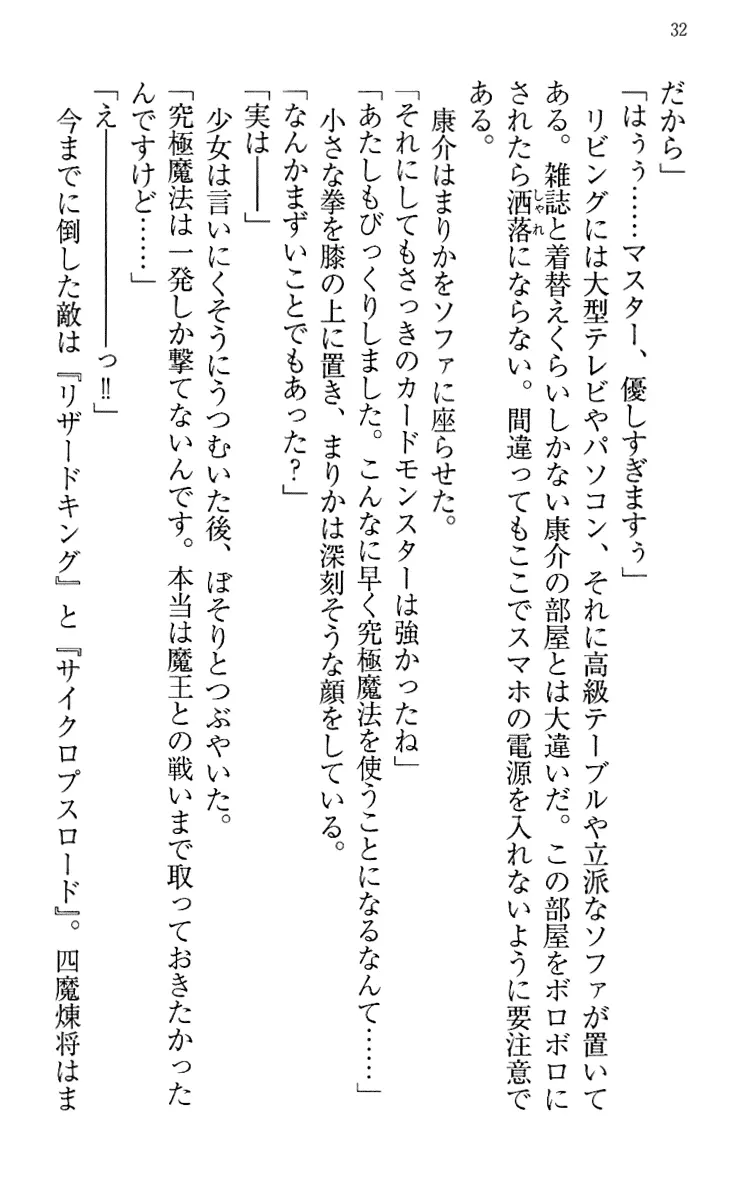 32
だから」
「はぅぅ……マスター、優しすぎますぅ」
　リビングには大型テレビやパソコン、それに高級テーブルや立派なソファが置いて
ある。雑誌と着替えくらいしかない康介の部屋とは大違いだ。この部屋をボロボロに
されたら洒落にならない。間違ってもここでスマホの電源を入れないように要注意で
ある。
　康介はまりかをソファに座らせた。
「それにしてもさっきのカードモンスターは強かったね」
「あたしもびっくりしました。こんなに早く究極魔法を使うことになるなんて……」
　小さな拳を膝の上に置き、まりかは深刻そうな顔をしている。
「なんかまずいことでもあった？」
「実は――」
　少女は言いにくそうにうつむいた後、ぼそりとつぶやいた。
「究極魔法は一発しか撃てないんです。本当は魔王との戦いまで取っておきたかった
んですけど……」
「え――――――っ!!」
　今までに倒した敵は『リザードキング』と『サイクロプスロード』。四魔煉将はま